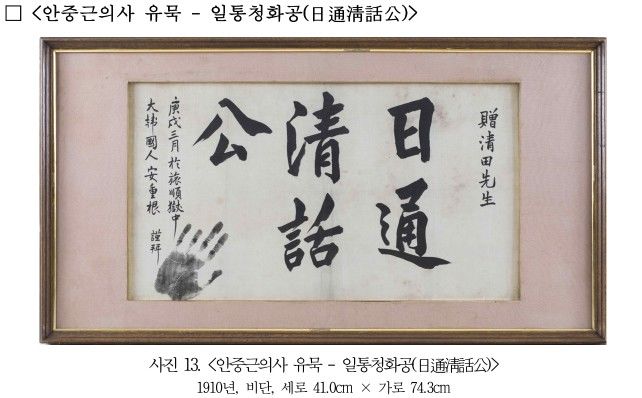 □ <안중근의사 유묵 - 일통청화공(日通淸話公)>
贈清田先生
日通
清話
公
庚戌三月 於旅順獄中
大韓國人 安重根 謹拜
사진 13. <안중근의사 유묵 - 일통청화공(日通淸話公)>
1910년, 비단, 세로 41.0cm × 가로 74.3cm